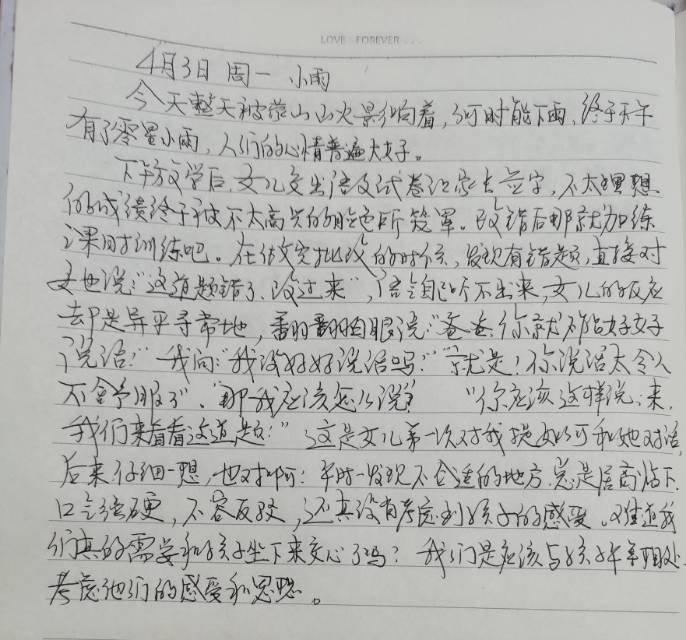 LOVE · FOREVER ...
4月3日 周一 小雨
今天整天被山火影响着,何时能下雨,终于下午
有了零星小雨,人们的心情普遍大好。
下午放学后,女儿交出语文试卷让家长签字,不太理想
的成绩终于被不太高兴的脸色所笼罩。改错后那就加练
课时训练吧。在做完批改的时候,发现有错题,直接对
女儿说:“这道题错了,改过来”,语气自己听不出来,女儿的反应
却是异乎寻常地,翻了翻白眼说:“爸爸,你就不能好好
说话!”我问:“我没好好说话吗?”“就是!你说话太令人
不舒服了”、“那我应该怎么说?”“你应该这样说:来,
我们来看看这道题!”这是女儿第一次对我提如何和她对话,
后来仔细一想,也对啊:平时一发现不合适的地方,总是居高临下,
口气强硬,不容反驳,还真没有考虑到孩子的感受。难道我
们真的需要和孩子坐下来交心了吗?我们是应该与孩子平等相处,
考虑他们的感受和思想。